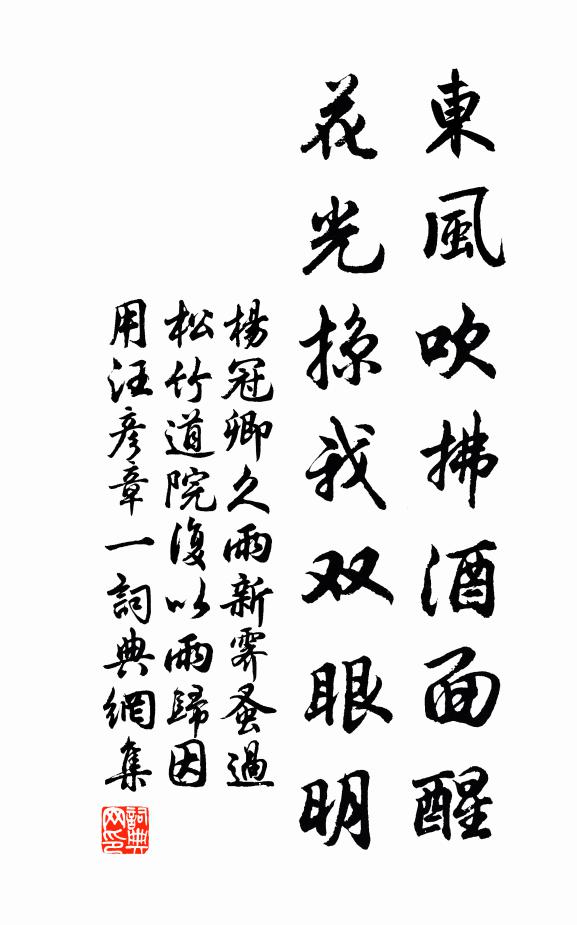 東風吹拂酒面醒
花光掠我双眼明
楊冠卿久雨新霽蚤過
松竹道院復以雨歸因
用汪彦章一詞典網集
詞典
网印